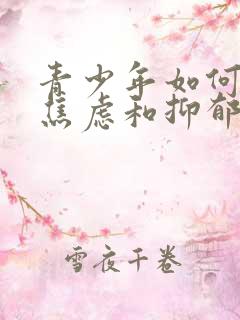 青少年如何
焦虑和抑郁
雪夜千卷